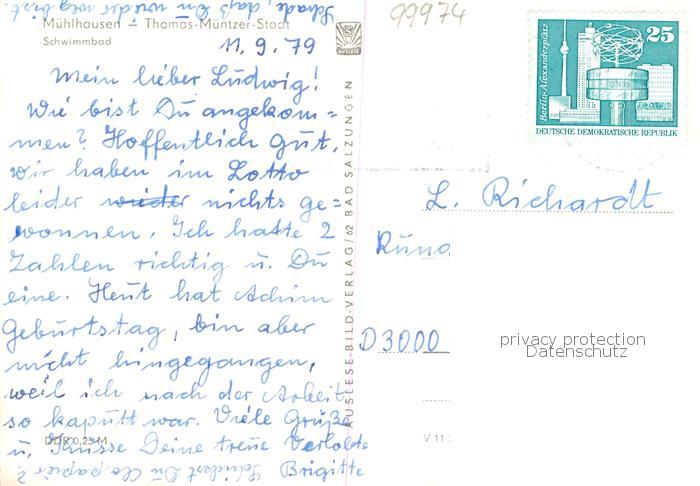 Mühlhausen – Thomas-Müntzer-Stadt
Schwimmbad
11.9.79
Mein lieber Ludwig!
Wie bist Du angekom=
men? Hoffentlich gut,
wir haben im Lotto
leider wieder nichts ge=
wonnen. Ich hatte 2
Zahlen richtig u. Du
eine. Heut hat Achim
Geburtstag, bin aber
nicht hingegangen,
weil ich nach der Arbeit
so kaputt war. Viele Grüße
u. Küsse Deine treue Verlobte
Brigitte
Schickst Du Clopapier?
Schade, daß Du wieder weg bist.
DDR 0,25 M
AUSLESE-BILD-VERLAG/62 BAD SALZUNGEN
AUSLESE
99974
Berlin-Alexanderplatz
25
DEUTSCHE DEMOKRATISCHE REPUBLIK
L. Richardt
D3000
privacy protection
Datenschutz
V 11